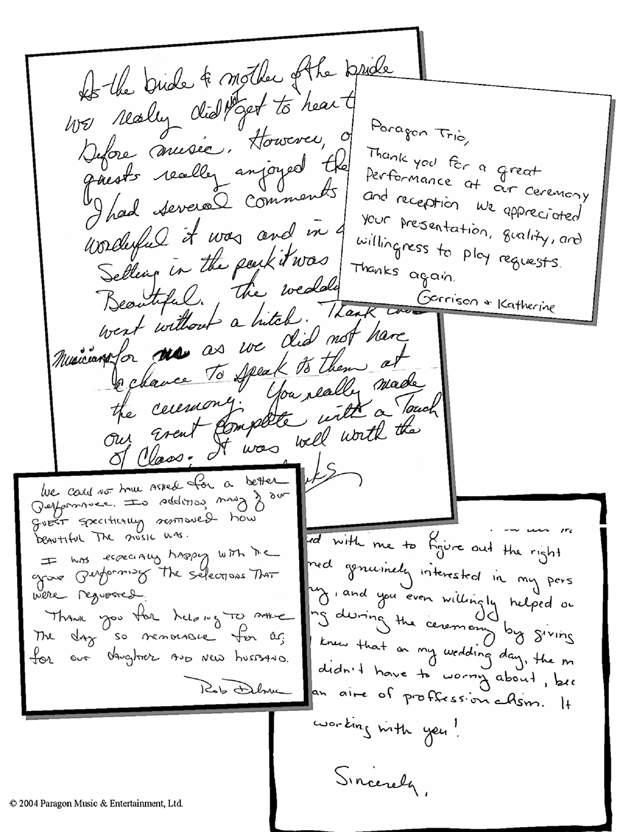 As the bride & mother of the bride
we really did not get to hear t
before music. However, o
guests really enjoyed the
I had several comments
wonderful it was and in a
Setting in the park it was
Beautiful. The wedding
went without a hitch. Thank
Musicians for us as we did not have
a chance To speak to them at
the ceremony. You really made
our event complete with a Touch
of Class. It was well worth the
Paragon Trio,
Thank you for a great
performance at our ceremony
and reception we appreciated
your presentation, quality, and
willingness to play requests.
Thanks again.
Garrison + Katherine
We could not have asked for a better
performance. In addition, many of our
guest specifically mentioned how
beautiful the music was.
I was especially happy with the
group performing the selections that
were requested.
Thank you for helping to make
the day so memorable for us,
for our daughter and new husband.
Rob
ed with me to figure out the right
med genuinely interested in my pers
ny, and you even willingly helped ou
ng during the ceremony by giving
I knew that on my wedding day, the m
didn't have to worry about, bec
an aire of proffessionalism. It
working with you!
Sincerely,
© 2004 Paragon Music & Entertainment, Ltd.